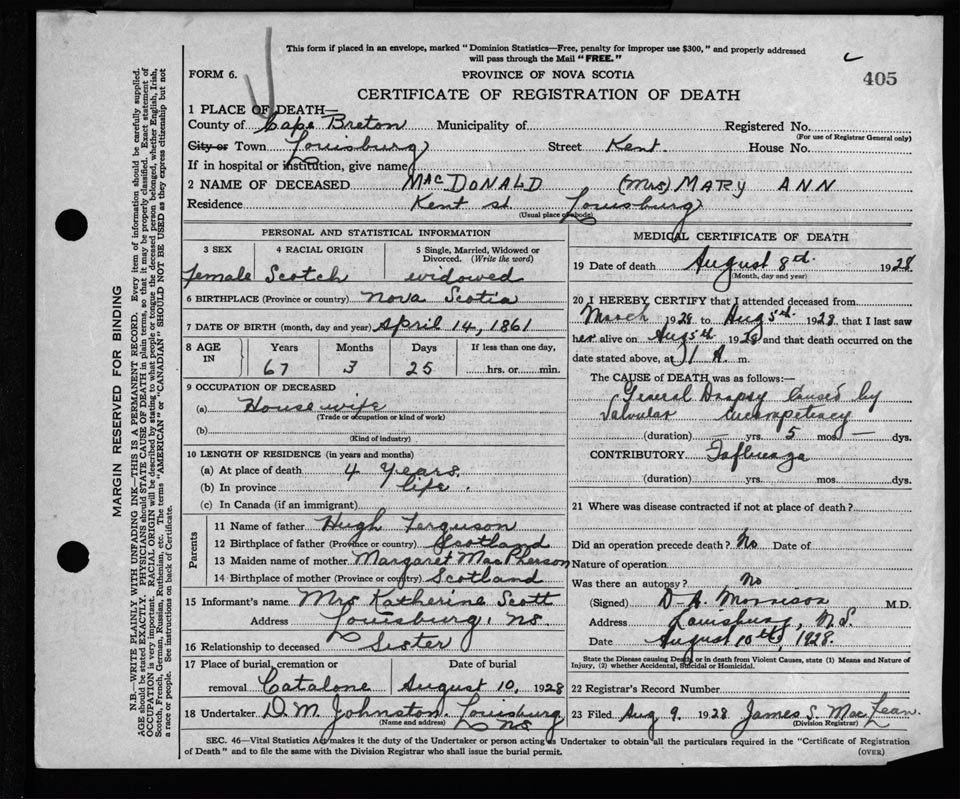 This form if placed in an envelope, marked "Dominion Statistics—Free, penalty for improper use $300," and properly addressed
will pass through the Mail "FREE."
FORM 6.
PROVINCE OF NOVA SCOTIA
405
CERTIFICATE OF REGISTRATION OF DEATH
1 PLACE OF DEATH—
County of Cape Breton Municipality of Registered No.
(For use of Registrar General only)
City or Town Louisburg Street Kent. House No.
If in hospital or institution, give name
2 NAME OF DECEASED MacDONALD (Mrs) MARY ANN
Residence Kent st Louisburg
(Usual place of abode)
PERSONAL AND STATISTICAL INFORMATION
3 SEX 4 RACIAL ORIGIN 5 Single, Married, Widowed or Divorced. (Write the word)
female Scotch widowed
6 BIRTHPLACE (Province or country) Nova Scotia
7 DATE OF BIRTH (month, day and year) April 14, 1861
8 AGE IN Years Months Days If less than one day,
67 3 25 hrs. or min.
9 OCCUPATION OF DECEASED
(a) House wife
(Trade or occupation or kind of work)
(b)
(Kind of industry)
10 LENGTH OF RESIDENCE (in years and months)
(a) At place of death 4 years.
(b) In province life.
(c) In Canada (if an immigrant)
Parents
11 Name of father Hugh Ferguson
12 Birthplace of father (Province or country) Scotland
13 Maiden name of mother Margaret MacPherson
14 Birthplace of mother (Province or country) Scotland
15 Informant's name Mrs Katherine Scott
Address Louisburg, NS.
16 Relationship to deceased Sister
17 Place of burial, cremation or removal Catalone
Date of burial August 10, 1928
18 Undertaker D.M. Johnston. Louisburg NS
(Name and address)
MEDICAL CERTIFICATE OF DEATH
19 Date of death August 8th. 1928
(Month, day and year)
20 I HEREBY CERTIFY that I attended deceased from
March 1928 to Aug 5th 1928 that I last saw
her alive on Aug 5th 1928 and that death occurred on the
date stated above, at 1 A. m.
The CAUSE of DEATH was as follows:—
General Dropsy Caused by
Valvular Incompetency
(duration) yrs. 5 mos. — dys.
CONTRIBUTORY Influenza
(duration) yrs. mos. dys.
21 Where was disease contracted if not at place of death?
Did an operation precede death? No Date of
Nature of operation
Was there an autopsy? No
(Signed) D. A. Morrison M.D.
Address Louisburg, N.S.
Date August 10th, 1928.
State the Disease causing Death, or in death from Violent Causes, state (1) Means and Nature of
Injury, (2) whether Accidental, Suicidal or Homicidal.
22 Registrar's Record Number
23 Filed Aug 9. 1928 James S. MacLean.
(Division Registrar)
SEC. 46—Vital Statistics Act makes it the duty of the Undertaker or person acting as Undertaker to obtain all the particulars required in the "Certificate of Registration
of Death" and to file the same with the Division Registrar who shall issue the burial permit.
(OVER)
MARGIN RESERVED FOR BINDING
N.B.—WRITE PLAINLY WITH UNFADING INK—THIS IS A PERMANENT RECORD. Every item of information should be carefully supplied.
AGE should be stated EXACTLY. PHYSICIANS should STATE CAUSE OF DEATH in plain terms, so that it may be properly classified. Exact statement of
OCCUPATION is very important. RACIAL ORIGIN will be described by stating to what people or tongue the deceased person belonged, whether English, Irish,
Scotch, French, German, Russian, Ruthenian, etc. The terms "AMERICAN" or "CANADIAN" SHOULD NOT BE USED as they express citizenship but not
a race or people. See instructions on back of Certificate.